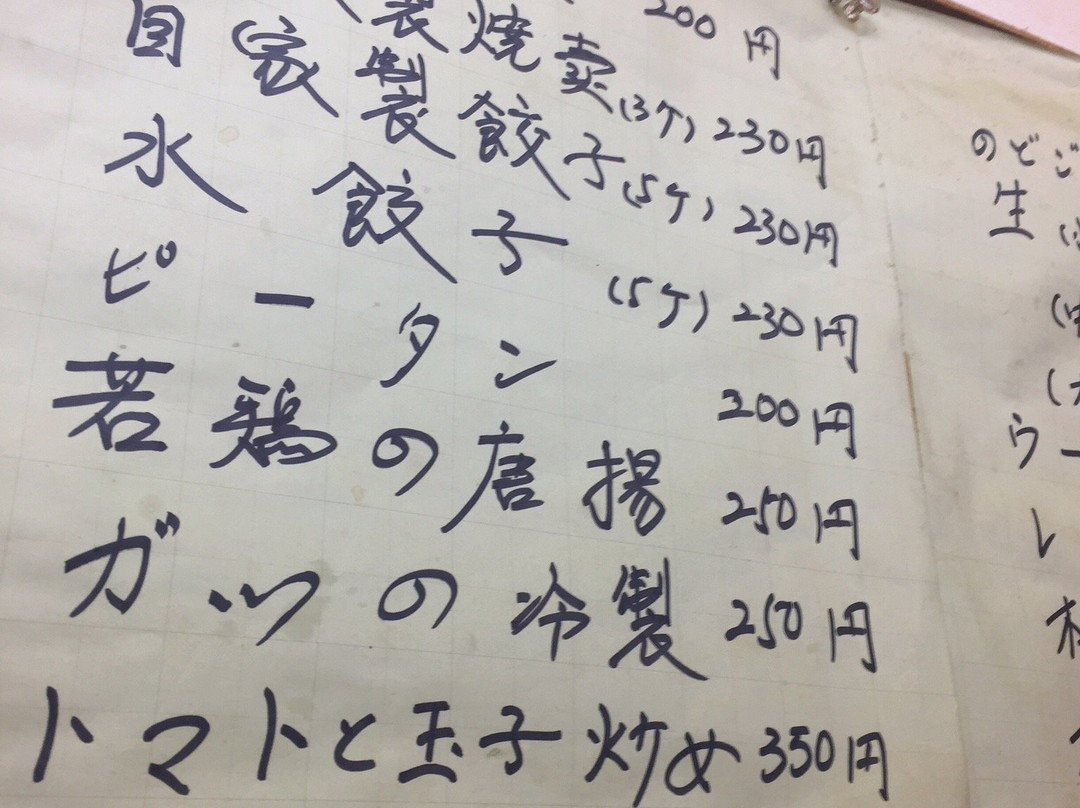 200円
製焼売(3ケ) 230円
自家製餃子(5ケ) 230円
水餃子(5ケ) 230円
ピータン 200円
若鶏の唐揚 250円
ガツの冷製 250円
トマトと玉子炒め 350円
のどご
生
ウー
レ